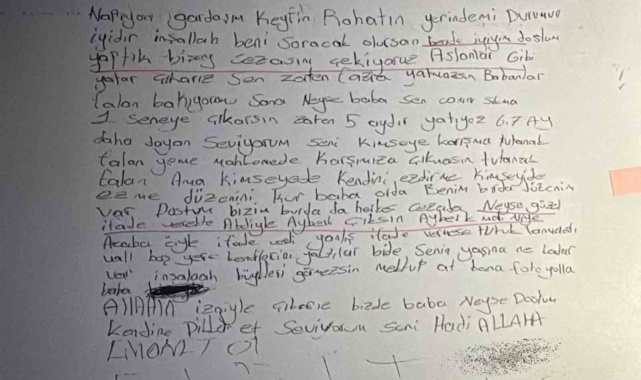 Napıyon gardaşım Keyfin Rahatın yerindemi Durumun
iyidir inşallah beni Soracak olursan bende iyiyim dostum
yaptık bizey cezasın çekiyoruz Aslanlar Gibi
yatar çıkarız Sen zaten fazla yatmazsın Babanlar
falan bakıyorom Sana Neyse baba sen canın sıkma
1 Seneye çıkarsın zaten 5 aydır yatıyoz 6.7 Ay
daha dayan Seviyorum seni Kimseye karışma tutanak
falan yeme mahkemede Karşımıza çıkmasın tutanak
falan Ama Kimseyede Kendini ezdirme Kimseyide
ezme düzenini Kur baba orda Benim burda düzenim
var Dostum bizim burda da herkes Cezada Neyse güzel
ifade Ahliyle Ayberk Çıksın Ayberk
Acaba öyle ifade yanlış ifade verirse
bide Senin yaşına ne kadar
var inşalaah görmezsin mektup at bana foto yolla
baba
AllAHın izniyle çıkarız bizde baba Neyse Dostum
Kendine Dikkat et Seviyorum Seni Hadi ALLAHA
EMANET Ol